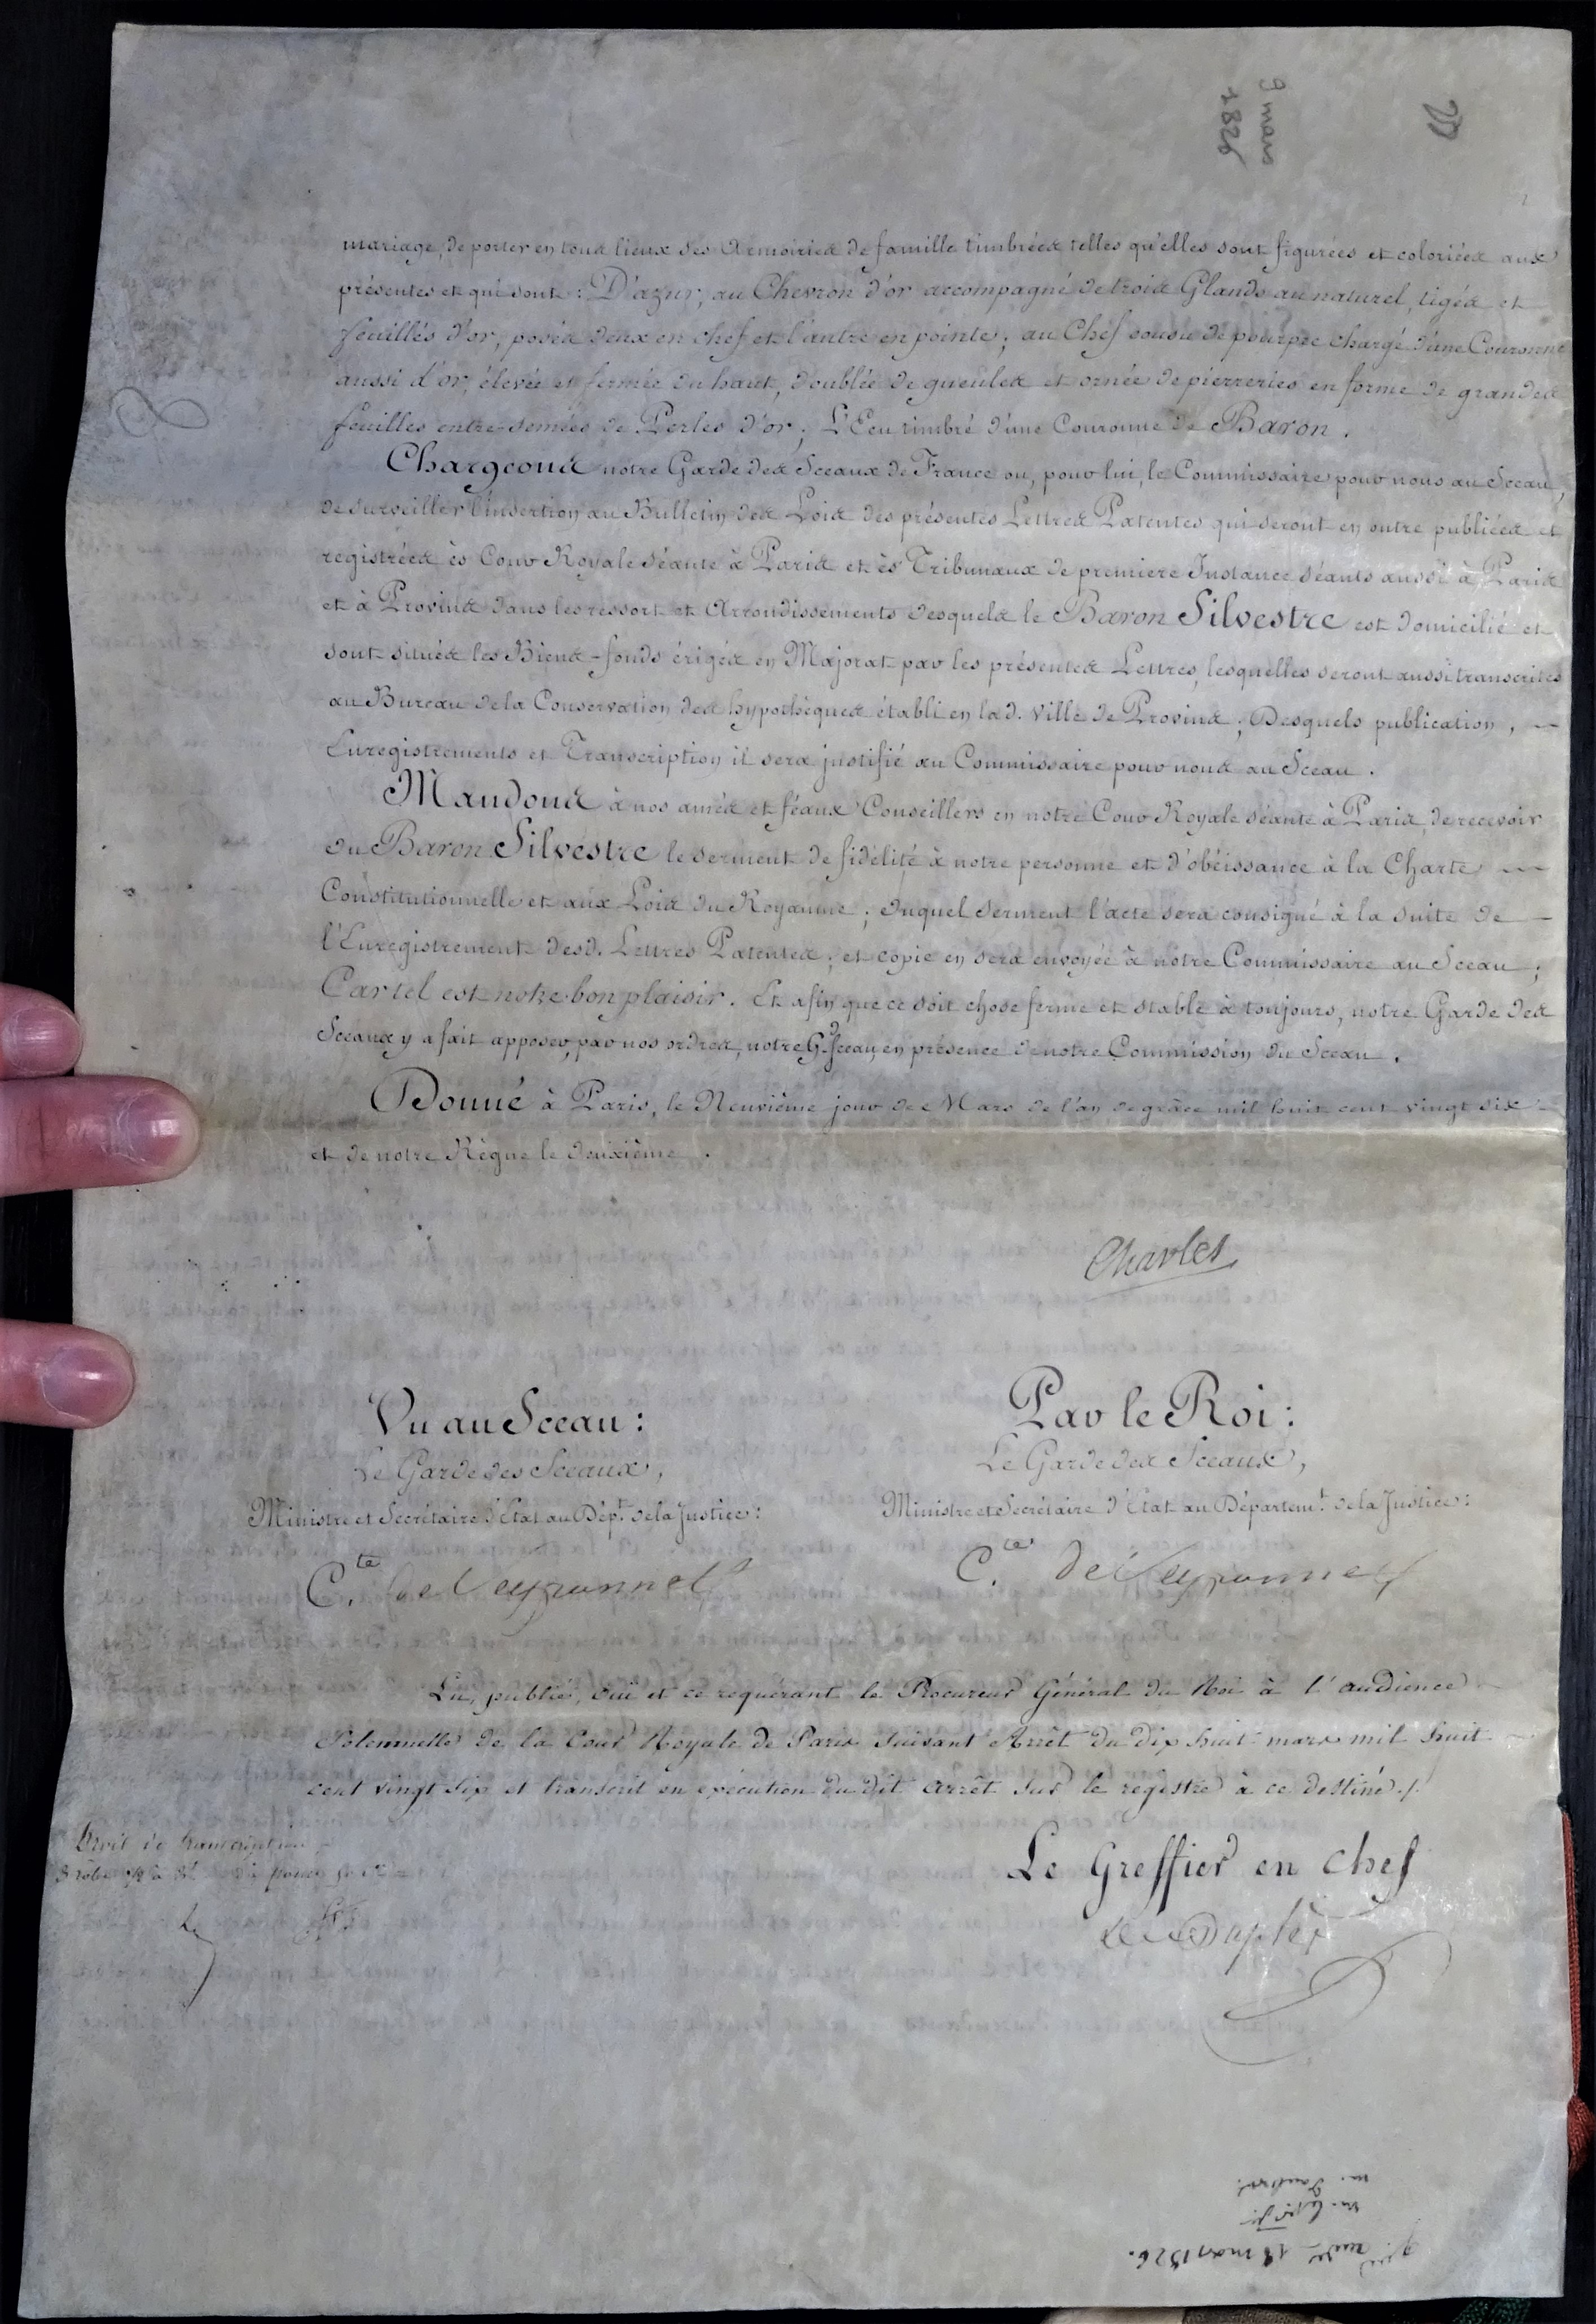 9 mars
1826
mariage, de porter en tous lieux ses Armoiries de famille timbrées telles qu'elles sont figurées et coloriées aux
présentes et qui sont : D'azur, au Chevron d'or accompagné de trois Glands au naturel, tigés et
feuillés d'or, posés deux en chef et l'autre en pointe ; au Chef cousu de pourpre chargé d'une Couronne
aussi d'or, élevée et fermée du haut, doublée de gueules et ornée de pierreries en forme de grandes
feuilles entre-semées de Perles d'or ; L'Ecu timbré d'une Couronne de Baron .
Chargeons notre Garde des Sceaux de France ou, pour lui, le Commissaire pour nous au Sceau,
de surveiller l'insertion au Bulletin des Lois des présentes Lettres Patentes qui seront en outre publiées et
registrées ès Cour Royale séante à Paris et ès Tribunaux de premiere Instance séants aussi à Paris
et à Provins dans les ressort et Arrondissements desquels le Baron Silvestre est domicilié et
sont situés les Biens-fonds érigés en Majorat par les présentes Lettres, lesquelles seront aussi transcrites
au Bureau de la Conservation des hypothèques établi en lad. Ville de Provins ; Desquels publication, —
Enregistrements et Transcription il sera justifié au Commissaire pour nous au Sceau .
Mandons à nos amés et féaux Conseillers en notre Cour Royale séante à Paris, de recevoir
du Baron Silvestre le serment de fidélité à notre personne et d'obéissance à la Charte —
Constitutionnelle et aux Lois du Royaume ; duquel serment l'acte sera consigné à la suite de —
l'Enregistrement desd. Lettres Patentes ; et copie en sera envoyée à notre Commissaire au Sceau ;
Car tel est notre bon plaisir. Et afin que ce soit chose ferme et stable à toujours, notre Garde des
Sceaux y a fait apposer, par nos ordres, notre Gd. Sceau, en présence de notre Commission du Sceau .
Donné à Paris, le Neuvième jour de Mars de l'an de grâce mil huit cent vingt six
et de notre Règne le deuxième .
Charles
Vu au Sceau :
Le Garde des Sceaux,
Ministre et Secrétaire d'Etat au Dépt. de la Justice :
Cte de Peyronnet
Par le Roi :
Le Garde des Sceaux,
Ministre et Secrétaire d'Etat au Départemt. de la Justice :
Cte de Peyronnet
Lu, publié, ouï et ce requérant le Procureur Général du Roi à l'audience
Solennelle de la Cour Royale de Paris suivant Arrêt du dix huit mars mil huit
cent vingt six et transcrit en exécution du dit arrêt sur le registre à ce destiné ./.
Droit de transcription
Le Greffier en chef
18 mars 1826.